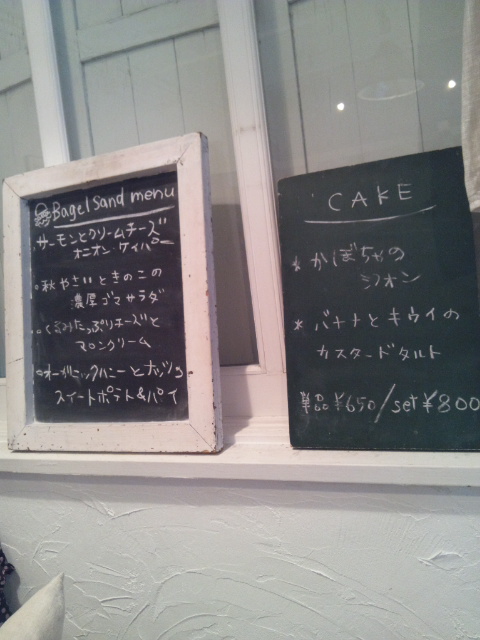 Bagel Sand menu
サーモンとクリームチーズ
オニオン・ケイパー
○秋やさいときのこの
濃厚ゴマサラダ
○くるみたっぷりチーズと
マロンクリーム
○オーガニックハニーとナッツの
スイートポテト&パイ
CAKE
* かぼちゃの
シフォン
* バナナとキウイの
カスタードタルト
単品¥650/set¥800